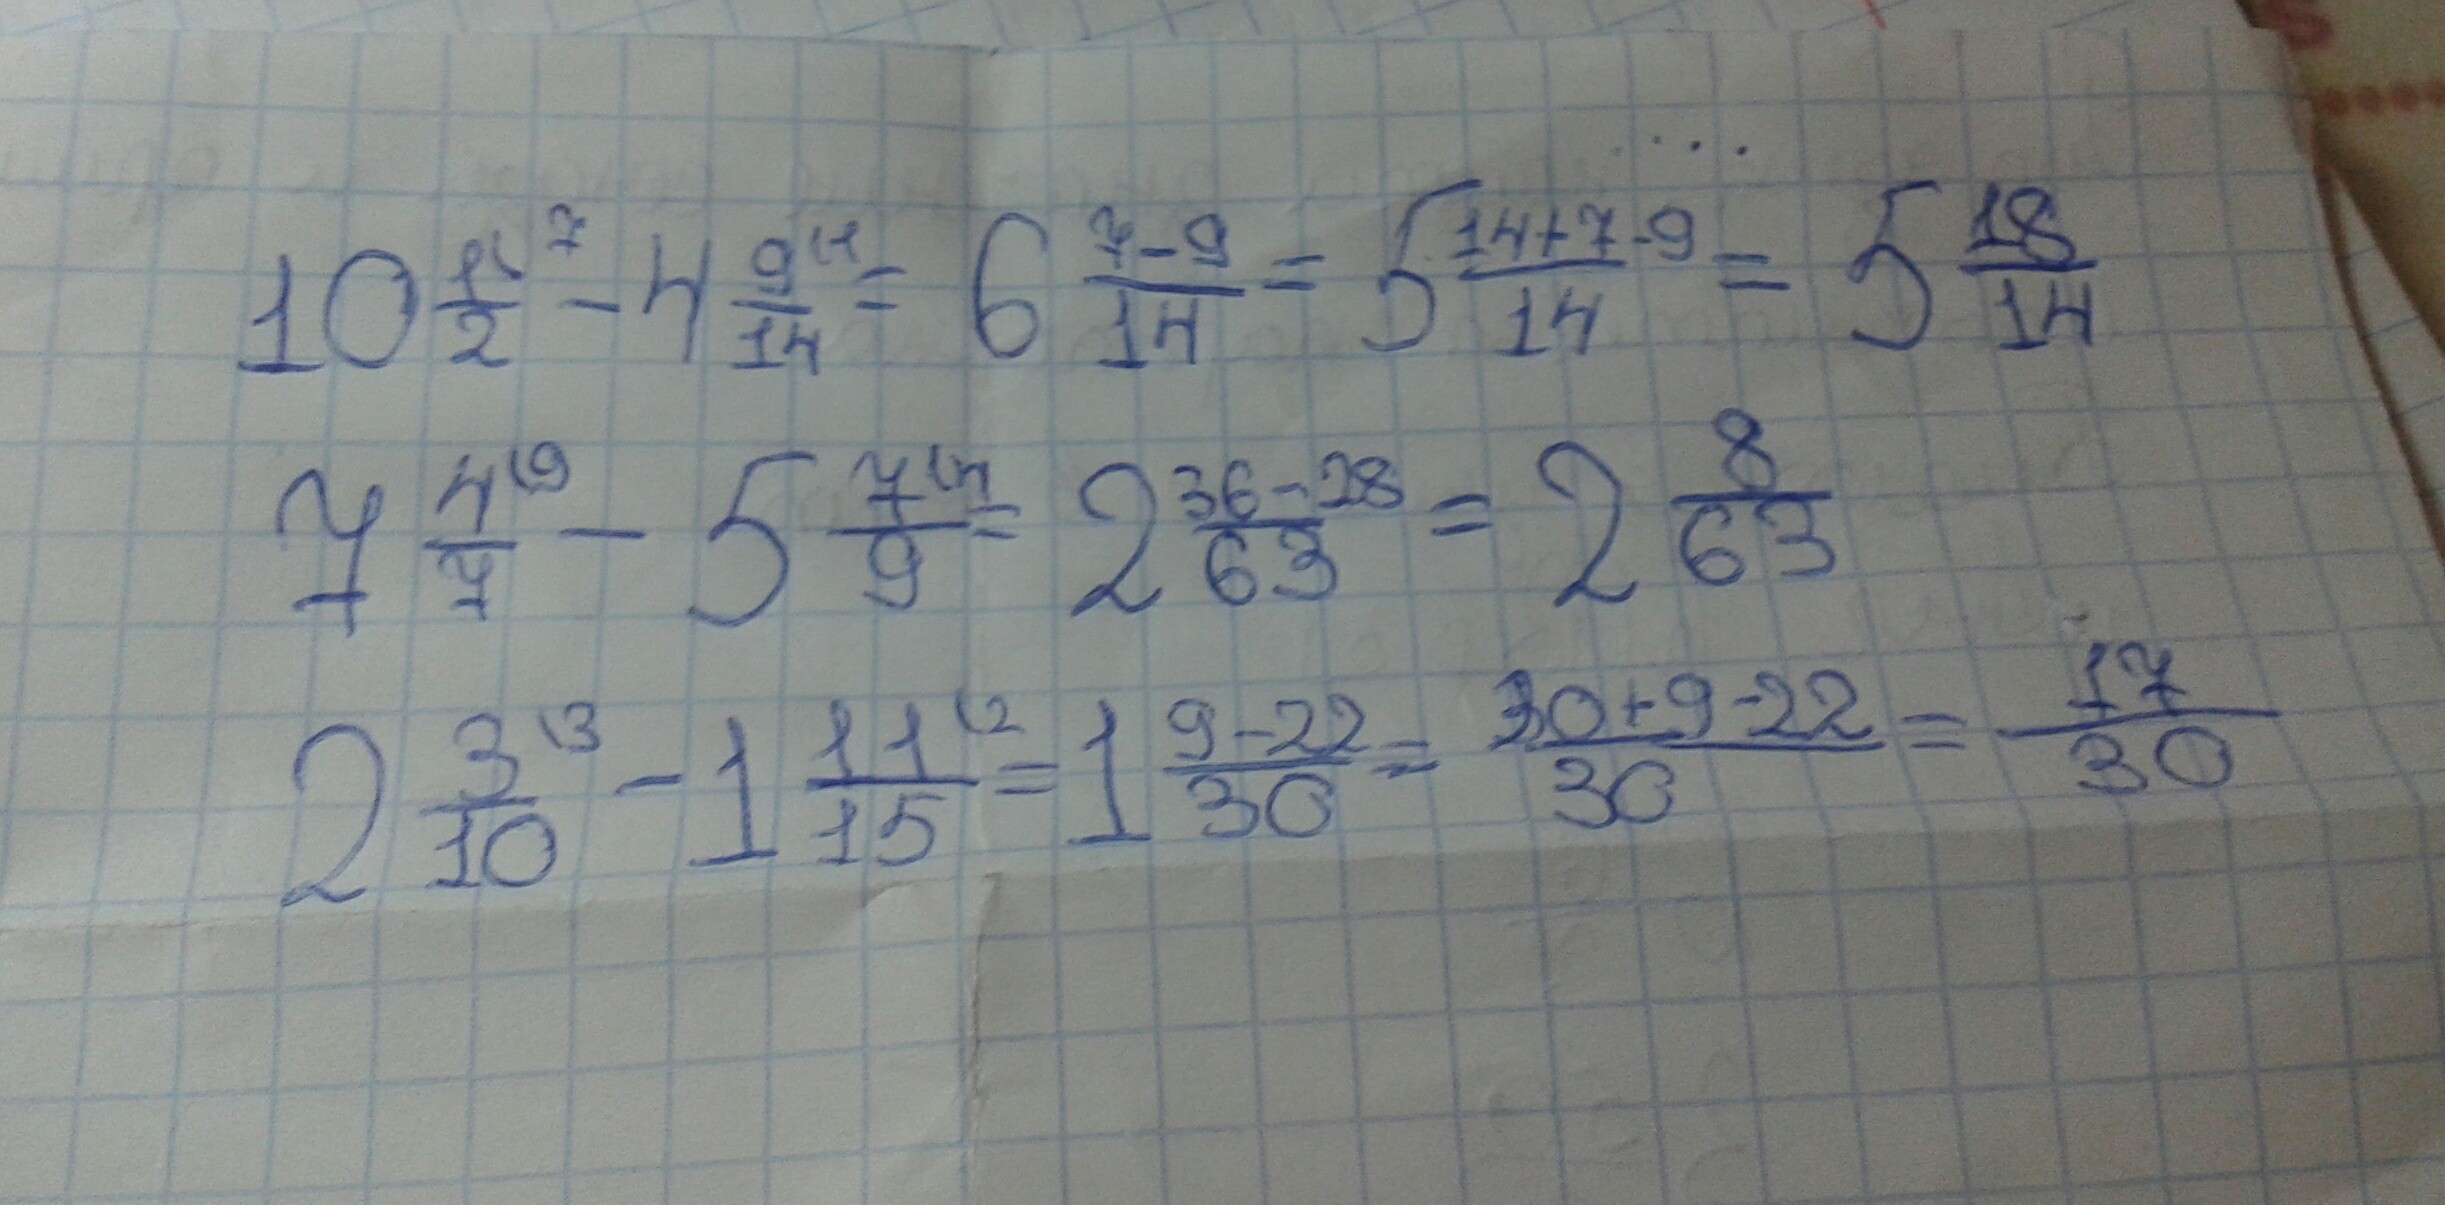 10 1/2 \7 - 4 9/14 \1 = 6 (7-9)/14 = 5 (14+7-9)/14 = 5 18/14
7 4/7 \9 - 5 7/9 \7 = 2 (36-28)/63 = 2 8/63
2 3/10 \3 - 1 11/15 \2 = 1 (9-22)/30 = (30+9-22)/30 = 17/30